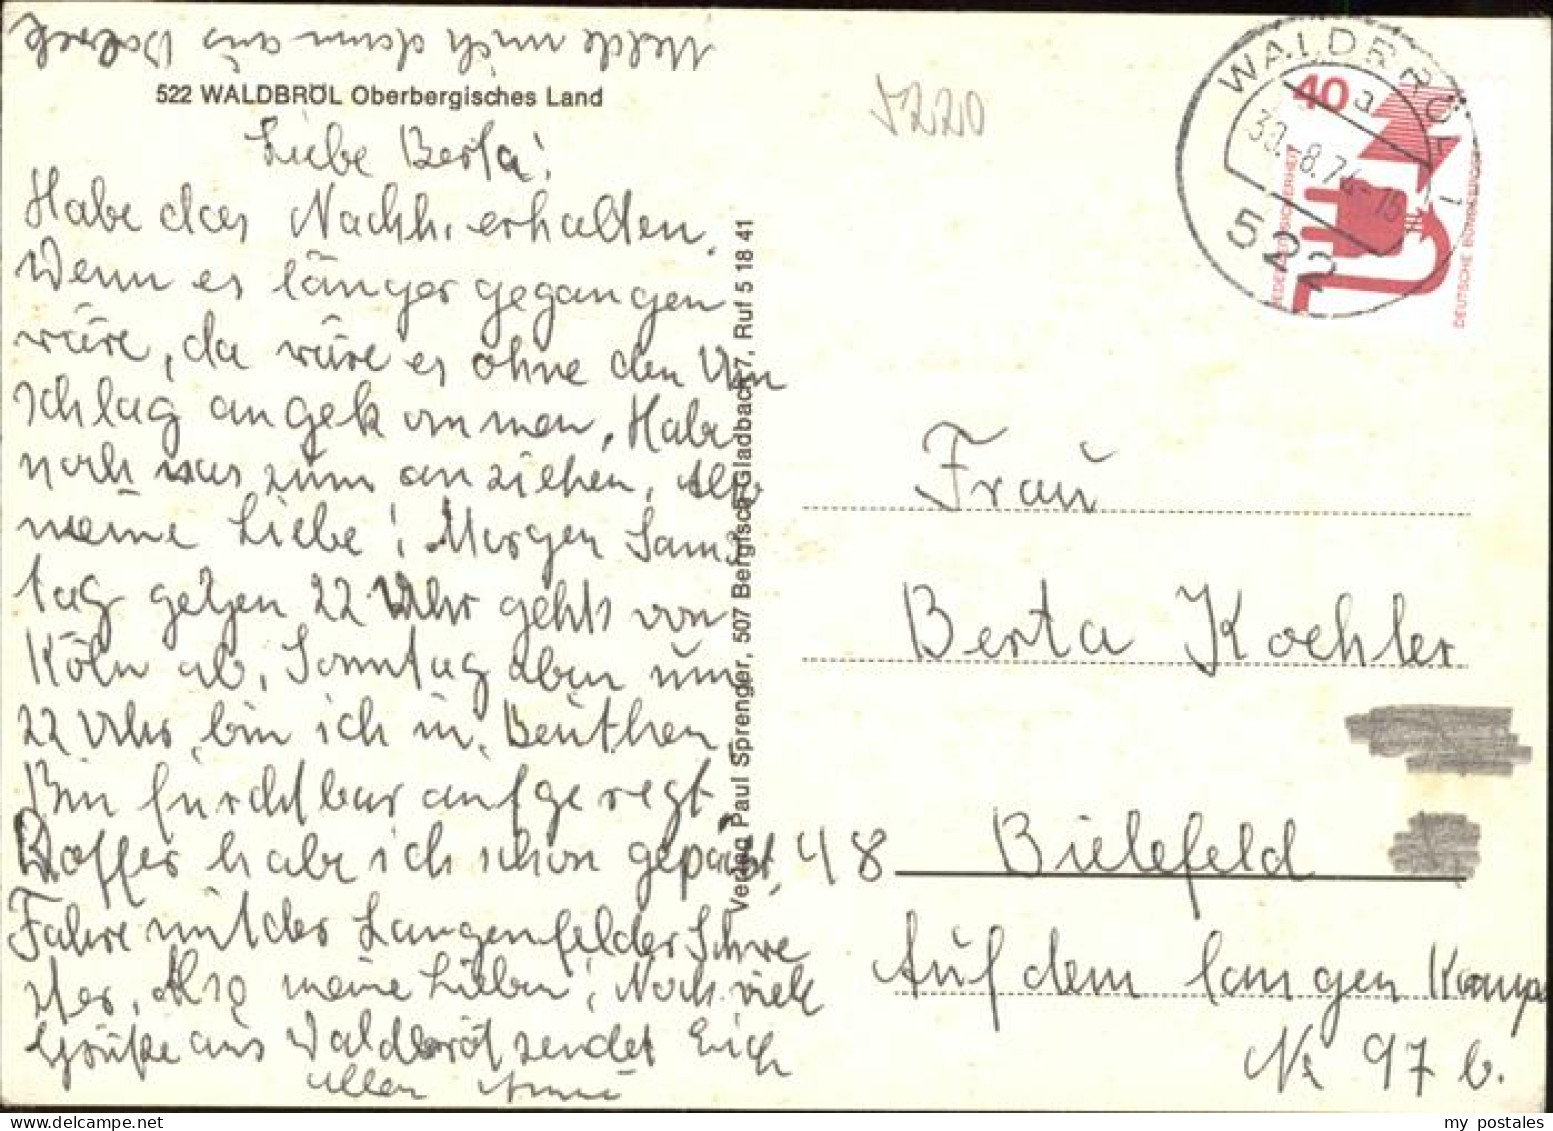 Melde mich dann aus
522 WALDBRÖL Oberbergisches Land
Liebe Berta!
Habe das Nachh. erhalten.
Wenn es länger gegangen
wäre, da wäre es ohne den Um
schlag angekommen. Habe
noch was zum anziehen. Also
meine Liebe! Morgen Sams
tag gegen 22 Uhr gehts von
Köln ab. Sonntag aben um
22 Uhr bin ich in Beuthen.
Bin furchtbar aufgeregt
Koffer habe ich schon gepackt.
Fahre mit der Langenfelder Schwe
ster. Also meine Lieben! Noch viele
Grüße aus Waldbröl sendet Euch
allen Anni
Verlag Paul Sprenger, 507 Bergisch Gladbach 7, Ruf 5 18 41
5220
WALDBRÖL 1
a
30.-8.74-15
522
40
JEDERZEIT SICHERHEIT
DEUTSCHE BUNDESPOST
Frau
Berta Koehler
48 Bielefeld
Auf dem langen Kampe
Nr 97 b.
my postales